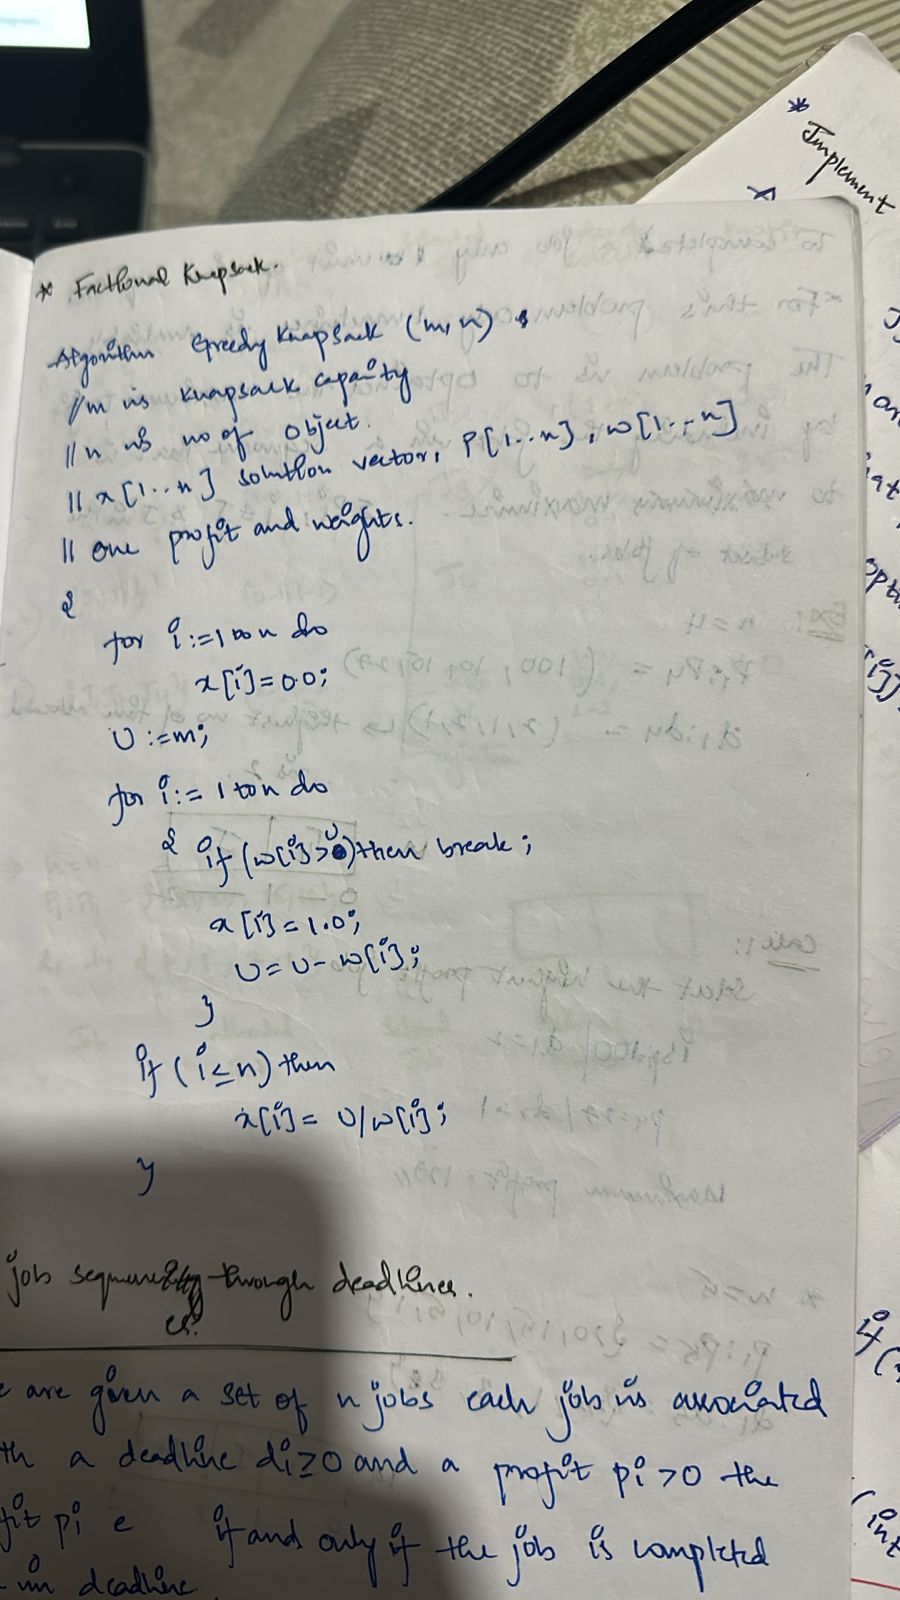 * Fractional Knapsack.
Algorithm Greedy Knapsack (m, n)
// m is knapsack capacity
// n is no of object.
// x[1..n] solution vector, P[1..n], w[1..n]
// one profit and weights.
{
for i:=1 to n do
x[i]=0.0;
U:=m;
for i:= 1 to n do
{ if (w[i]>U) then break;
x[i]=1.0;
U=U-w[i];
}
if (i≤n) then
x[i]= U/w[i];
}
job sequencing through deadlines.
e are given a set of n jobs each job is associated
th a deadline di≥0 and a profit pi>0 the
fit pi e if and only if the job is completed
in deadline
* Implement
if (
(int